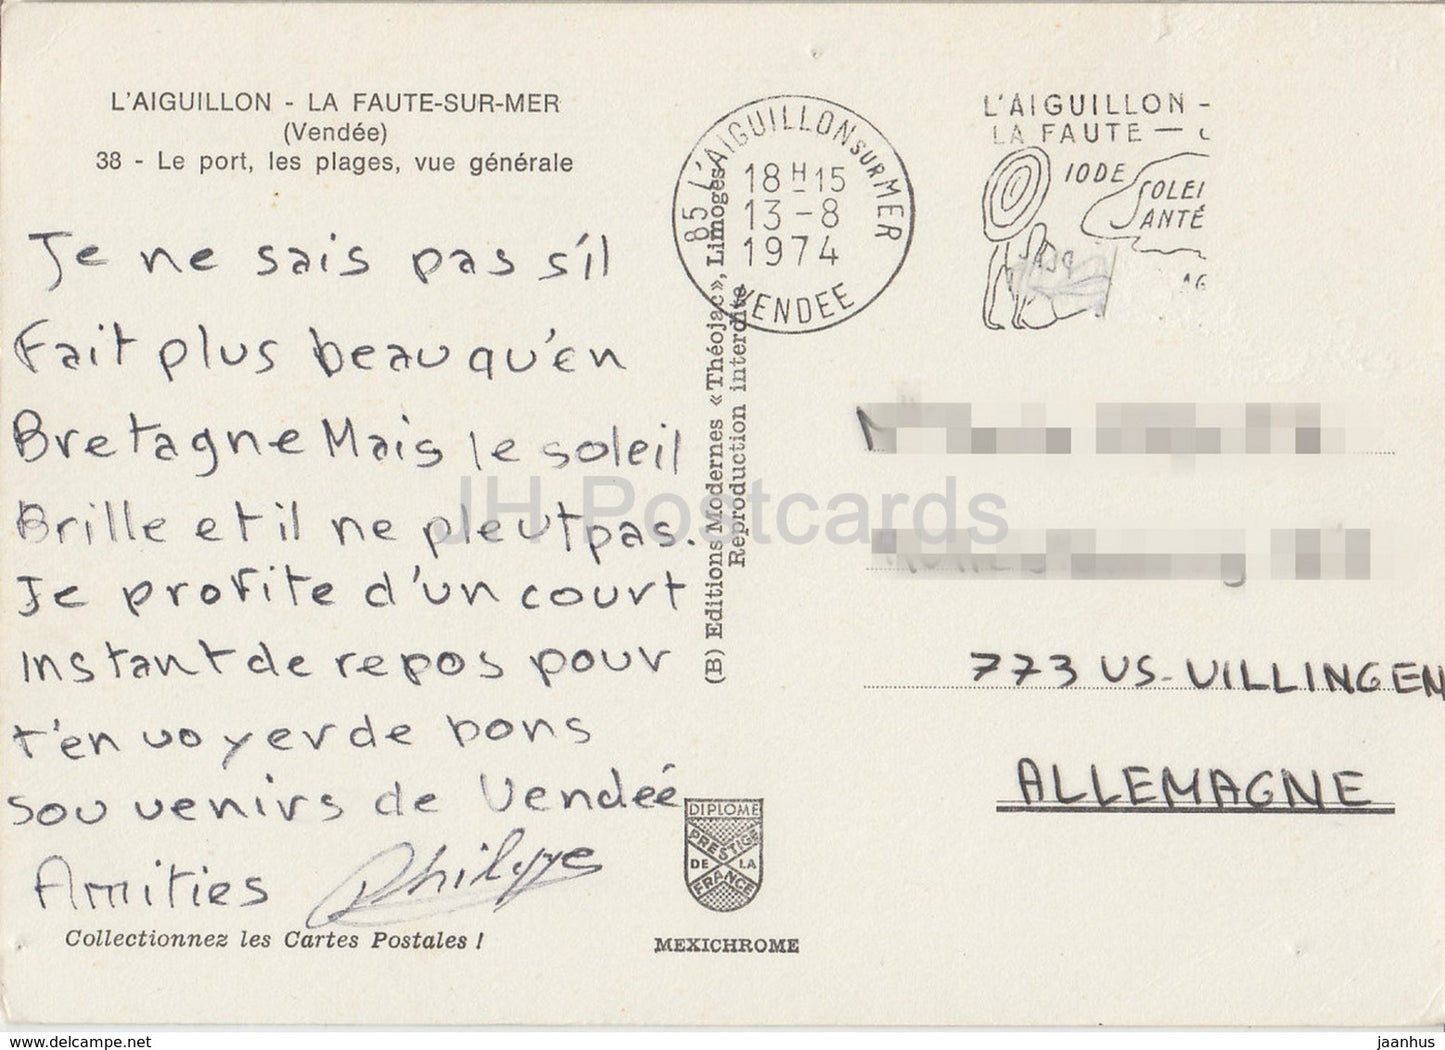 L'AIGUILLON - LA FAUTE-SUR-MER
(Vendée)
38 - Le port, les plages, vue générale
Je ne sais pas s'il
Fait plus beau qu'en
Bretagne Mais le soleil
Brille et il ne pleut pas.
Je profite d'un court
instant de repos pour
t'envoyer de bons
souvenirs de Vendéé
Amities Philippe
Collectionnez les Cartes Postales !
(B) Editions Modernes « Théojac », Limoges
Reproduction interdite
85 L'AIGUILLON SUR MER
18 H 15
13 - 8
1974
VENDEE
L'AIGUILLON -
LA FAUTE —
IODE
SOLEI
SANTÉ
773 VS-VILLINGEN
ALLEMAGNE
DIPLOME
PRESTIGE
DE LA
FRANCE
MEXICHROME
JH Postcards
www.delcampe.net
jaanhus